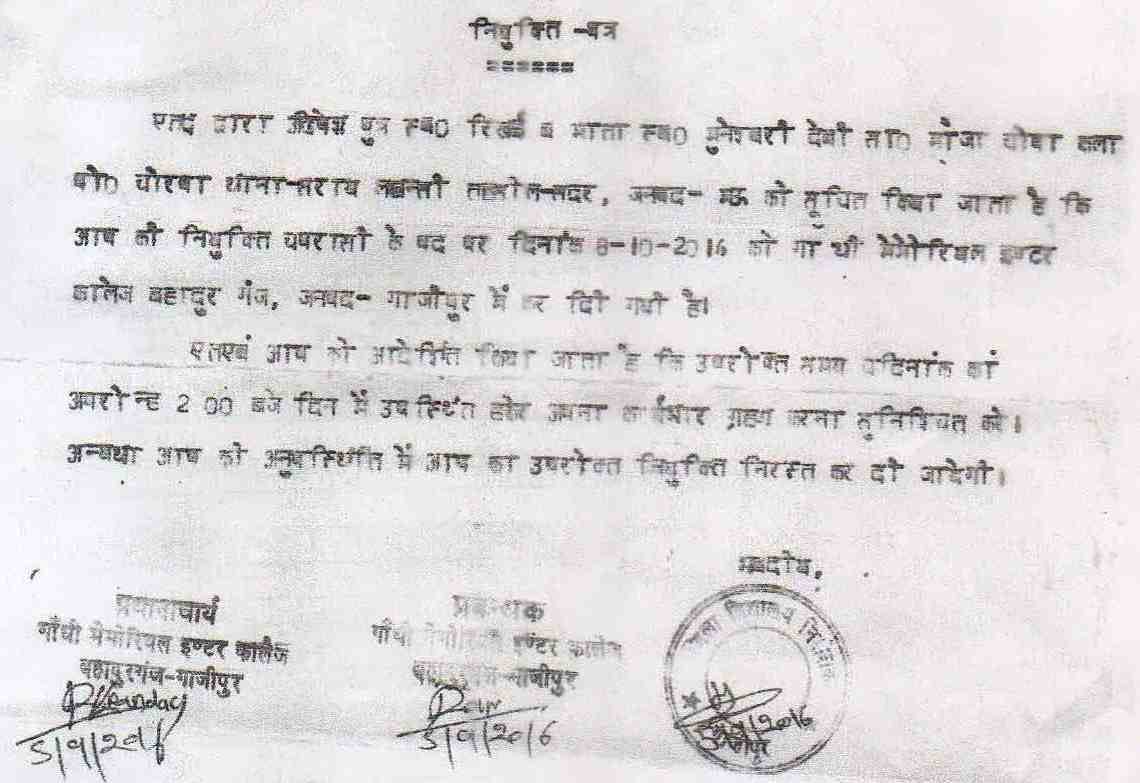 नियुक्ति -पत्र
======
एतद् द्वारा पुत्र स्व0 व माता स्व0 मुनेश्वरी देवी सा0 मौजा कला
पो0 थाना-सराय लखन्सी सदर, जनपद- मऊ को सूचित किया जाता है कि
आप की नियुक्ति चपरासी के पद पर दिनांक 8-10-2016 को गाँ धी मेमोरियल इण्टर
कालेज बहादुर गंज, जनपद- गाजीपुर में कर दिी गयी है।
एतएवं आप को आदेशित किया जाता है कि उपरोक्त समय व दिनांक कां
अपरोन्ह 2 00 बजे दिन में उपस्थित होकर अपना कार्यभार ग्रहण करना सुनिश्चित करे।
अन्यथा आप को अनुपस्थिति में आप का उपरोक्त नियुक्ति निरस्त कर दी जायेगी।
भवदीय,
प्रधानाचार्य
गाँधी मेमोरियल इण्टर कालेज
बहादुरगंज-गाजीपुर
5/9/2016
प्रबन्धक
गाँधी मेमोरियल इण्टर कालेज
बहादुरगंज-गाजीपुर
5/9/2016
जिला विद्यालय निरीक्षक